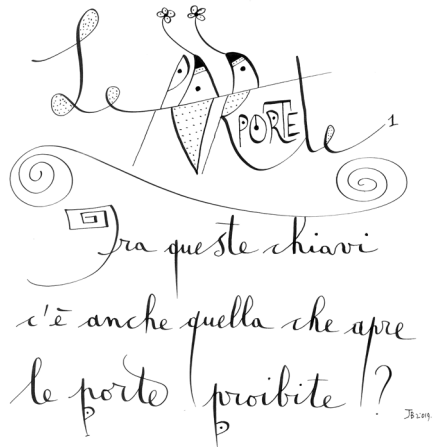 Le Porte 1
PORTE
Fra queste chiavi
c'è anche quella che apre
le porte proibite?
JB 2019